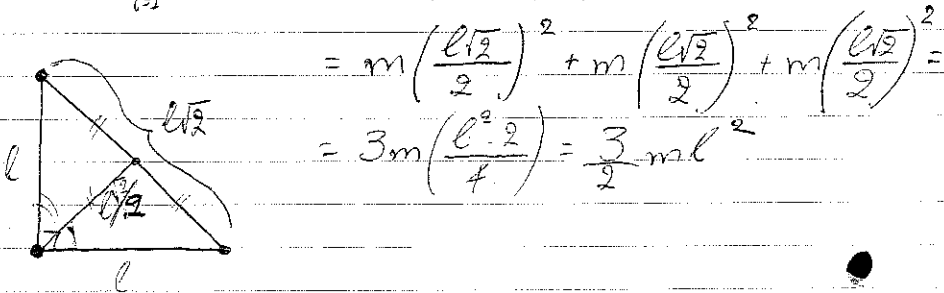 = m(l√2/2)² + m(l√2/2)² + m(l√2/2)² =
= 3m(l²·2/4) = 3/2 ml²
l√2
l
l